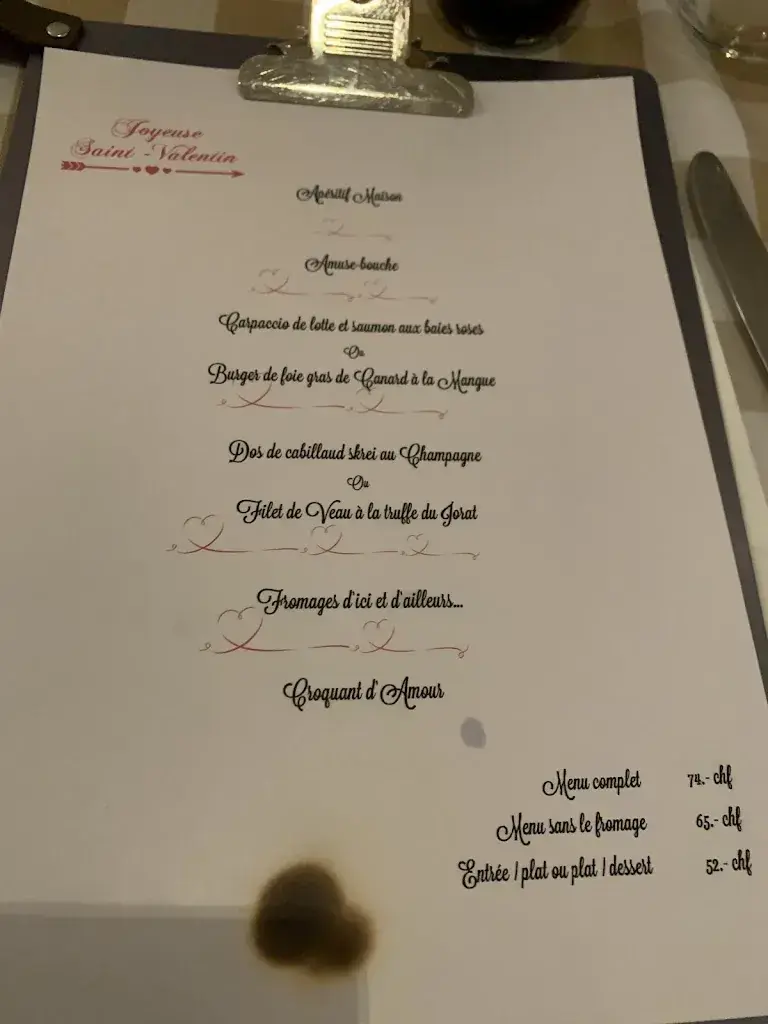 Joyeuse
Saint -Valentin
Apéritif Maison
Amuse-bouche
Carpaccio de lotte et saumon aux baies roses
Ou
Burger de foie gras de Canard à la Mangue
Dos de cabillaud skrei au Champagne
Ou
Filet de Veau à la truffe du Jorat
Fromages d'ici et d'ailleurs...
Croquant d'Amour
Menu complet 74.- chf
Menu sans le fromage 65.- chf
Entrée / plat ou plat / dessert 52.- chf